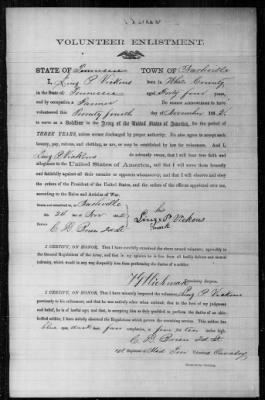 VOLUNTEER ENLISTMENT.
STATE OF Tennessee TOWN OF Nashville
I, P Vickens born in White County
in the State of Tennessee aged Forty four years,
and by occupation a Farmer Do HEREBY ACKNOWLEDGE to have
volunteered this Twenty fourth day of November 1862,
to serve as a Soldier in the Army of the United States of America, for the period of
THREE YEARS, unless sooner discharged by proper authority: Do also agree to accept such
bounty, pay, rations, and clothing, as are, or may be established by law for volunteers. And I,
P Vickens do solemnly swear, that I will bear true faith and
allegiance to the United States of America, and that I will serve them honestly
and faithfully against all their enemies or opposers whomsoever; and that I will observe and obey
the orders of the President of the United States, and the orders of the officers appointed over me,
according to the Rules and Articles of War.
Sworn and subscribed to, at Nashville
this 24 day of Nov 1862
BEFORE C D
his
P Vickens
mark
I CERTIFY, ON HONOR, That I have carefully examined the above named volunteer, agreeably to
the General Regulations of the Army, and that in my opinion he is free from all bodily defects and mental
infirmity, which would in any way disqualify him from performing the duties of a soldier.
Examining Surgeon.
I CERTIFY, ON HONOR, That I have minutely inspected the volunteer, P Vickens
previously to his enlistment, and that he was entirely sober when enlisted; that to the best of my judgment
and belief, he is of lawful age; and that, in accepting him as duly qualified to perform the duties of an able-
bodied soldier, I have strictly observed the Regulations which govern the recruiting service. This soldier has
blue eyes, dark hair, fair complexion, is five feet ten inches high.
C D
1st Regiment of Mid Tenn Cavalry
RECRUITING OFFICER.